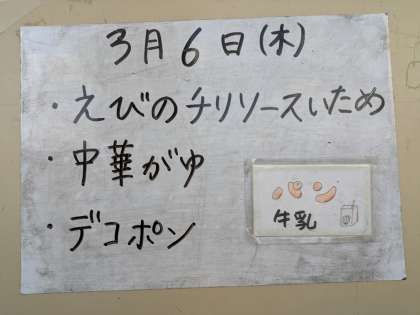 3月6日(木)
・えびのチリソースいため
・中華がゆ
・デコポン
パン
牛乳